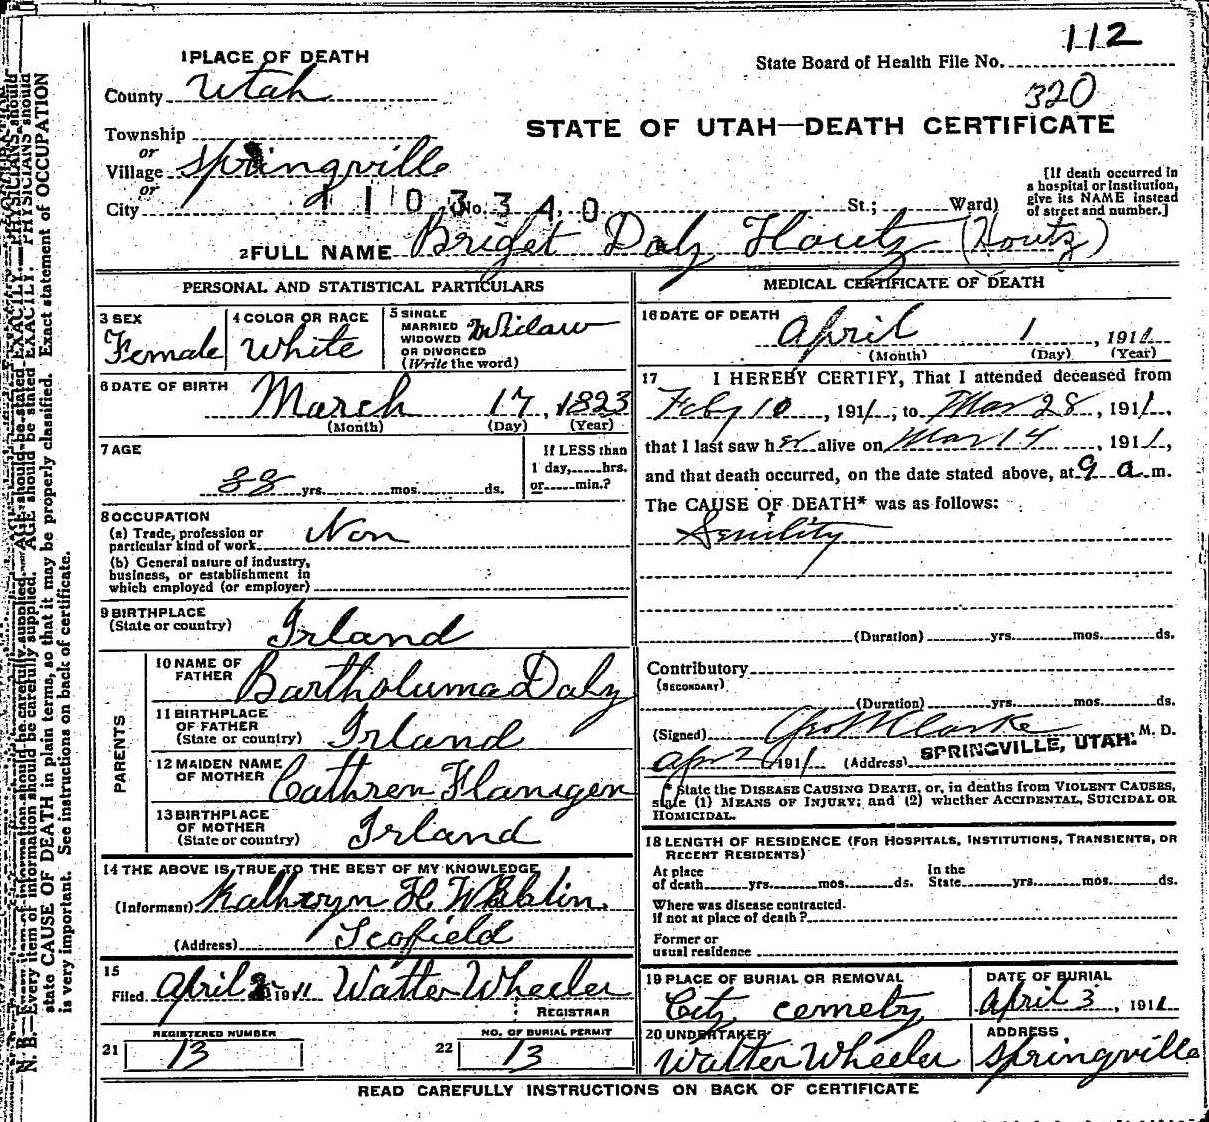 112
1 PLACE OF DEATH
State Board of Health File No.
County Utah
320
STATE OF UTAH—DEATH CERTIFICATE
Township
or
Village Springville
or
City No. St.; Ward)
1103340
[If death occurred in
a hospital or institution,
give its NAME instead
of street and number.]
2 FULL NAME Briget Daly Houtz (Houtz)
PERSONAL AND STATISTICAL PARTICULARS
3 SEX
Female
4 COLOR OR RACE
White
5 SINGLE
MARRIED
WIDOWED
OR DIVORCED
(Write the word)
Widow
6 DATE OF BIRTH
March 17, 1823
(Month) (Day) (Year)
7 AGE
88 yrs. mos. ds.
If LESS than
1 day, hrs.
or min.?
8 OCCUPATION
(a) Trade, profession or
particular kind of work Non
(b) General nature of industry,
business, or establishment in
which employed (or employer)
9 BIRTHPLACE
(State or country) Irland
PARENTS
10 NAME OF
FATHER Bartholuma Daly
11 BIRTHPLACE
OF FATHER
(State or country) Irland
12 MAIDEN NAME
OF MOTHER Cathren Flanigen
13 BIRTHPLACE
OF MOTHER
(State or country) Irland
14 THE ABOVE IS TRUE TO THE BEST OF MY KNOWLEDGE
(Informant) Kathryn H.
(Address) Scofield
15
Filed April 1911 Walter Wheeler
REGISTRAR
REGISTERED NUMBER
21 13
NO. OF BURIAL PERMIT
22 13
MEDICAL CERTIFICATE OF DEATH
16 DATE OF DEATH
April 1, 1911
(Month) (Day) (Year)
17 I HEREBY CERTIFY, That I attended deceased from
Feby 10, 1911, to Mar 28, 1911,
that I last saw her alive on Mar 14, 1911,
and that death occurred, on the date stated above, at 9 a m.
The CAUSE OF DEATH* was as follows:
Senility
(Duration) yrs. mos. ds.
Contributory
(SECONDARY)
(Duration) yrs. mos. ds.
(Signed) Geo M Clarke M. D.
Apr 2 1911 (Address) SPRINGVILLE, UTAH.
* State the DISEASE CAUSING DEATH, or, in deaths from VIOLENT CAUSES,
state (1) MEANS OF INJURY; and (2) whether ACCIDENTAL, SUICIDAL OR
HOMICIDAL.
18 LENGTH OF RESIDENCE (FOR HOSPITALS, INSTITUTIONS, TRANSIENTS, OR
RECENT RESIDENTS)
At place In the
of death yrs. mos. ds. State yrs. mos. ds.
Where was disease contracted
if not at place of death?
Former or
usual residence
19 PLACE OF BURIAL OR REMOVAL
City cemety
DATE OF BURIAL
April 3, 1911
20 UNDERTAKER
Walter Wheeler
ADDRESS
Springville
READ CAREFULLY INSTRUCTIONS ON BACK OF CERTIFICATE
N. B.—Every item of information should be carefully supplied. AGE should be stated EXACTLY. PHYSICIANS should
state CAUSE OF DEATH in plain terms, so that it may be properly classified. Exact statement of OCCUPATION
is very important. See instructions on back of certificate.